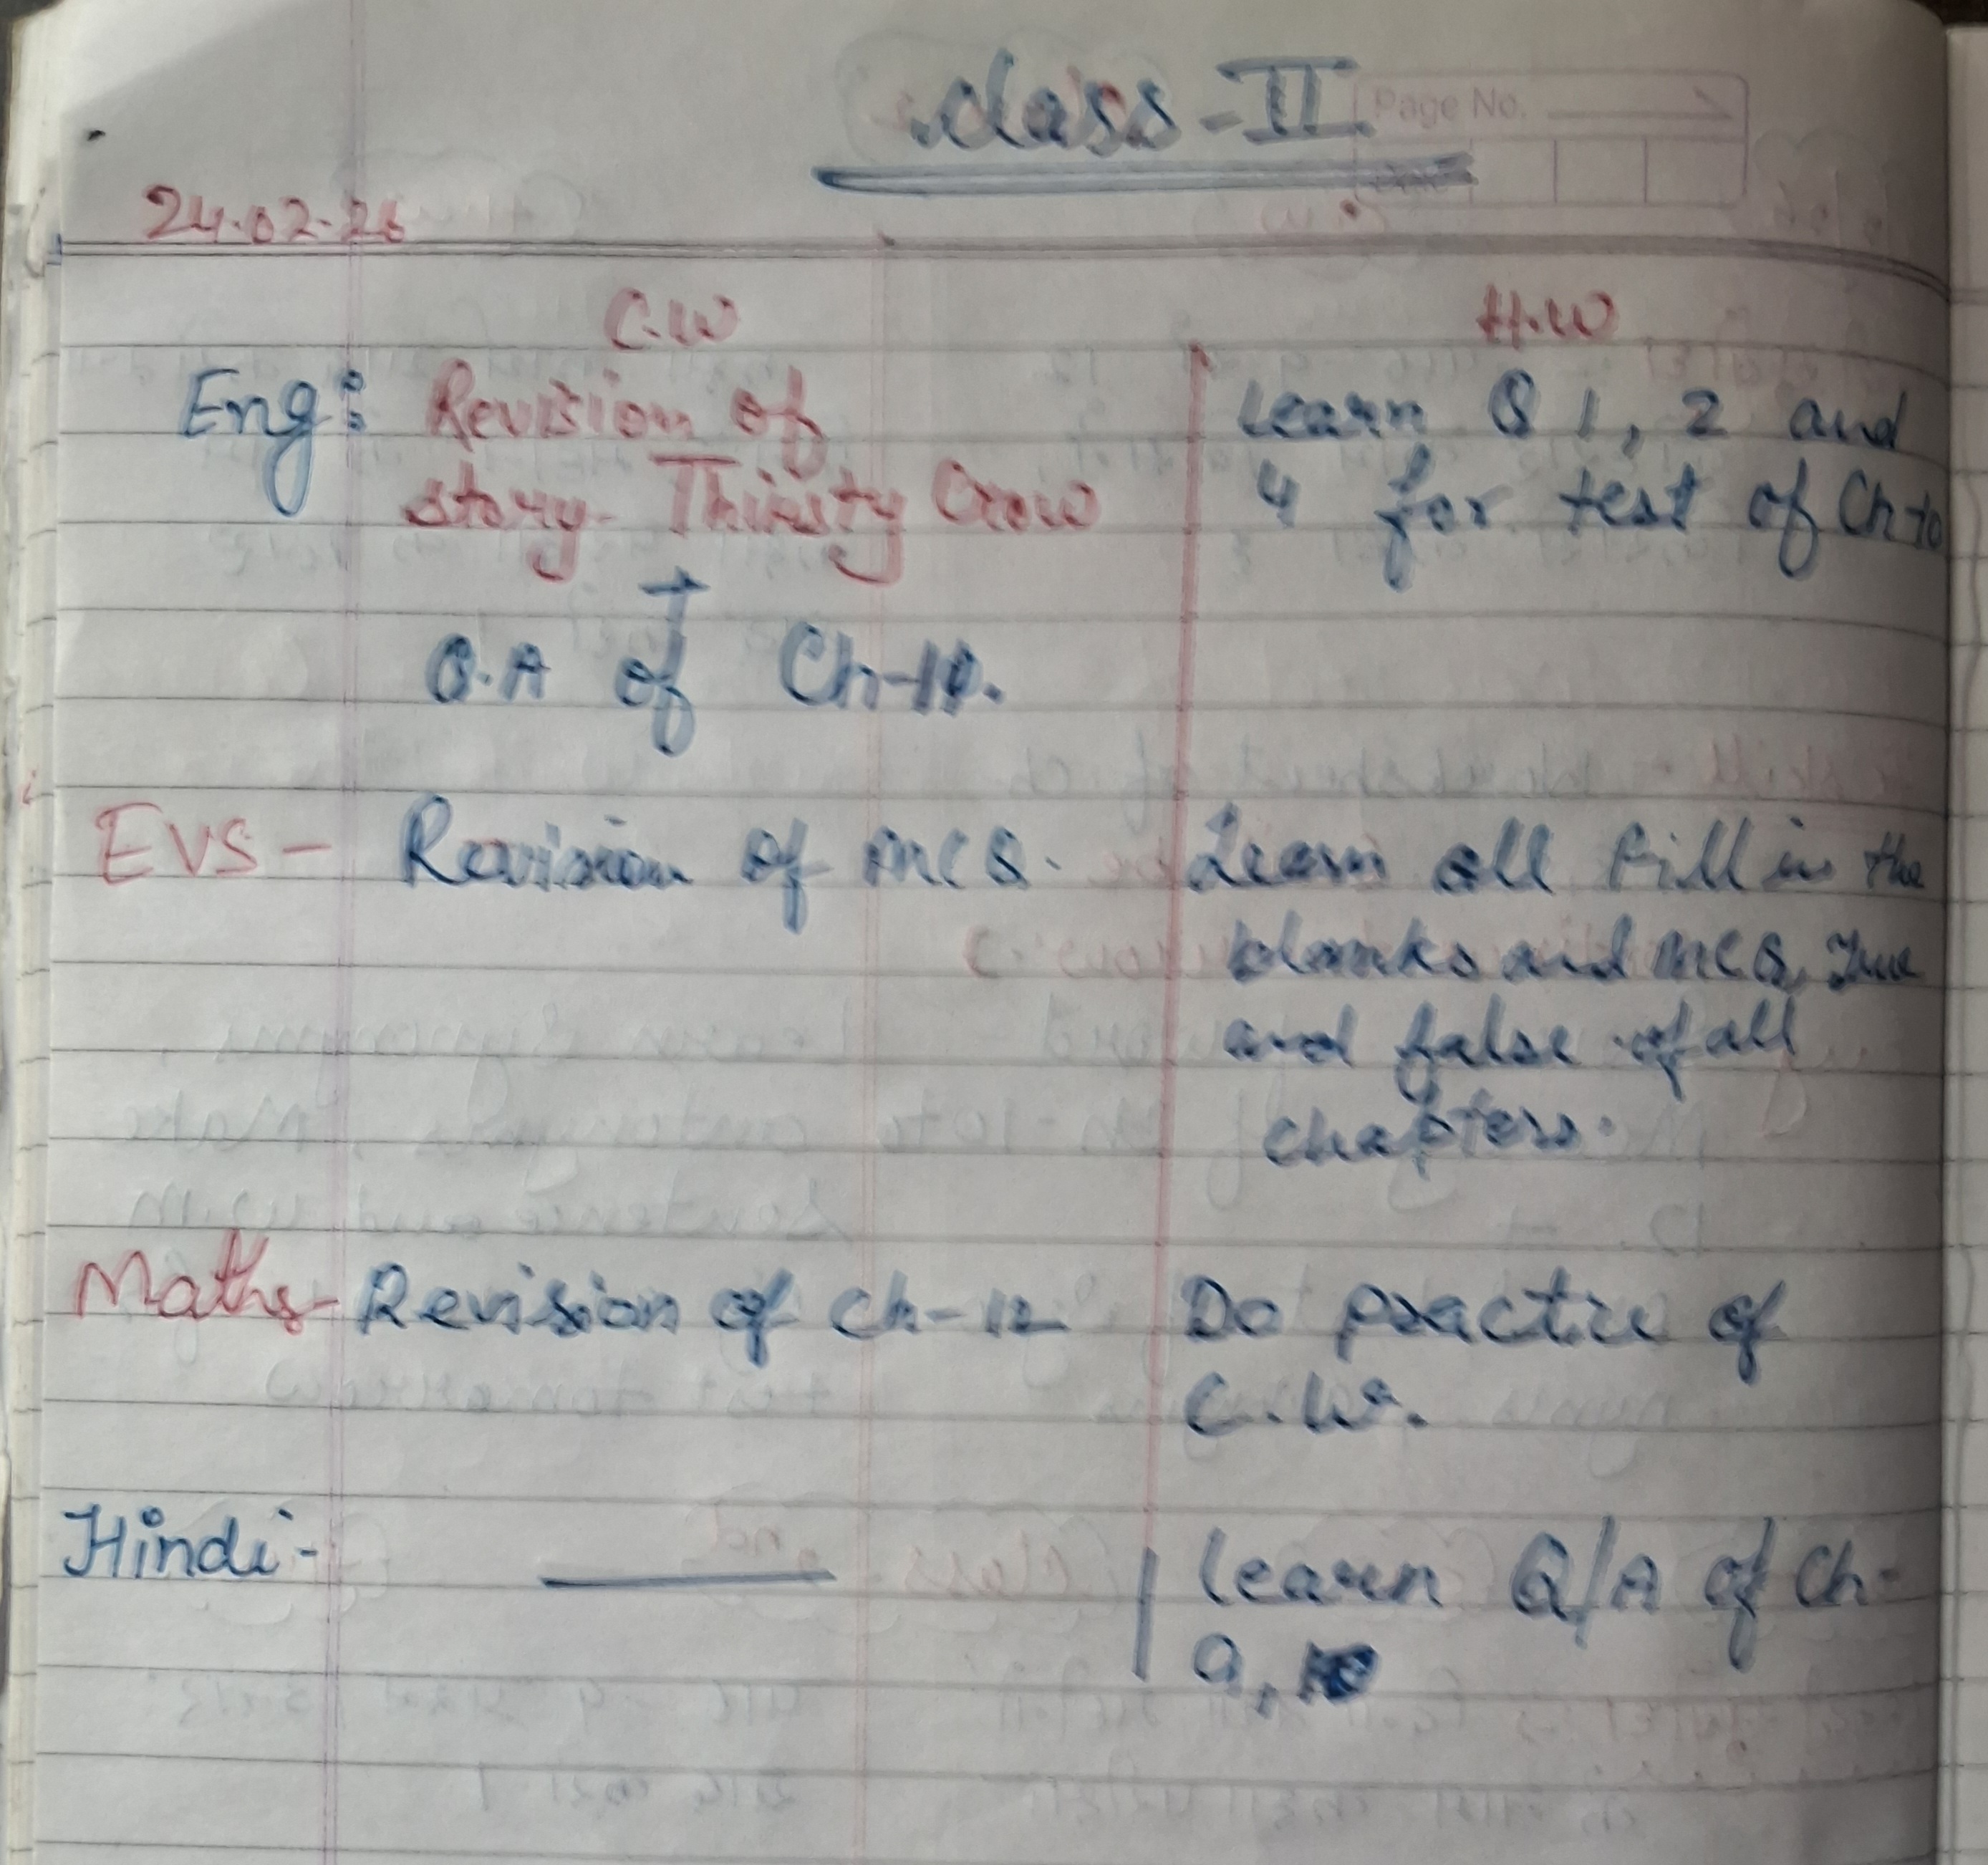 Class-II
Page No.
24.02.26
C.W H.W
Eng: Revision of Learn Q 1, 2 and
story- Thirsty Crow 4 for test of Ch-10
+
Q.A of Ch-10.
EVS- Revision of MCQ. Learn all fill in the
blanks and MCQ, True
and false of all
chapters.
Maths- Revision of Ch-12 Do practice of
C.W.
Hindi- Learn Q/A of Ch-
9, 10